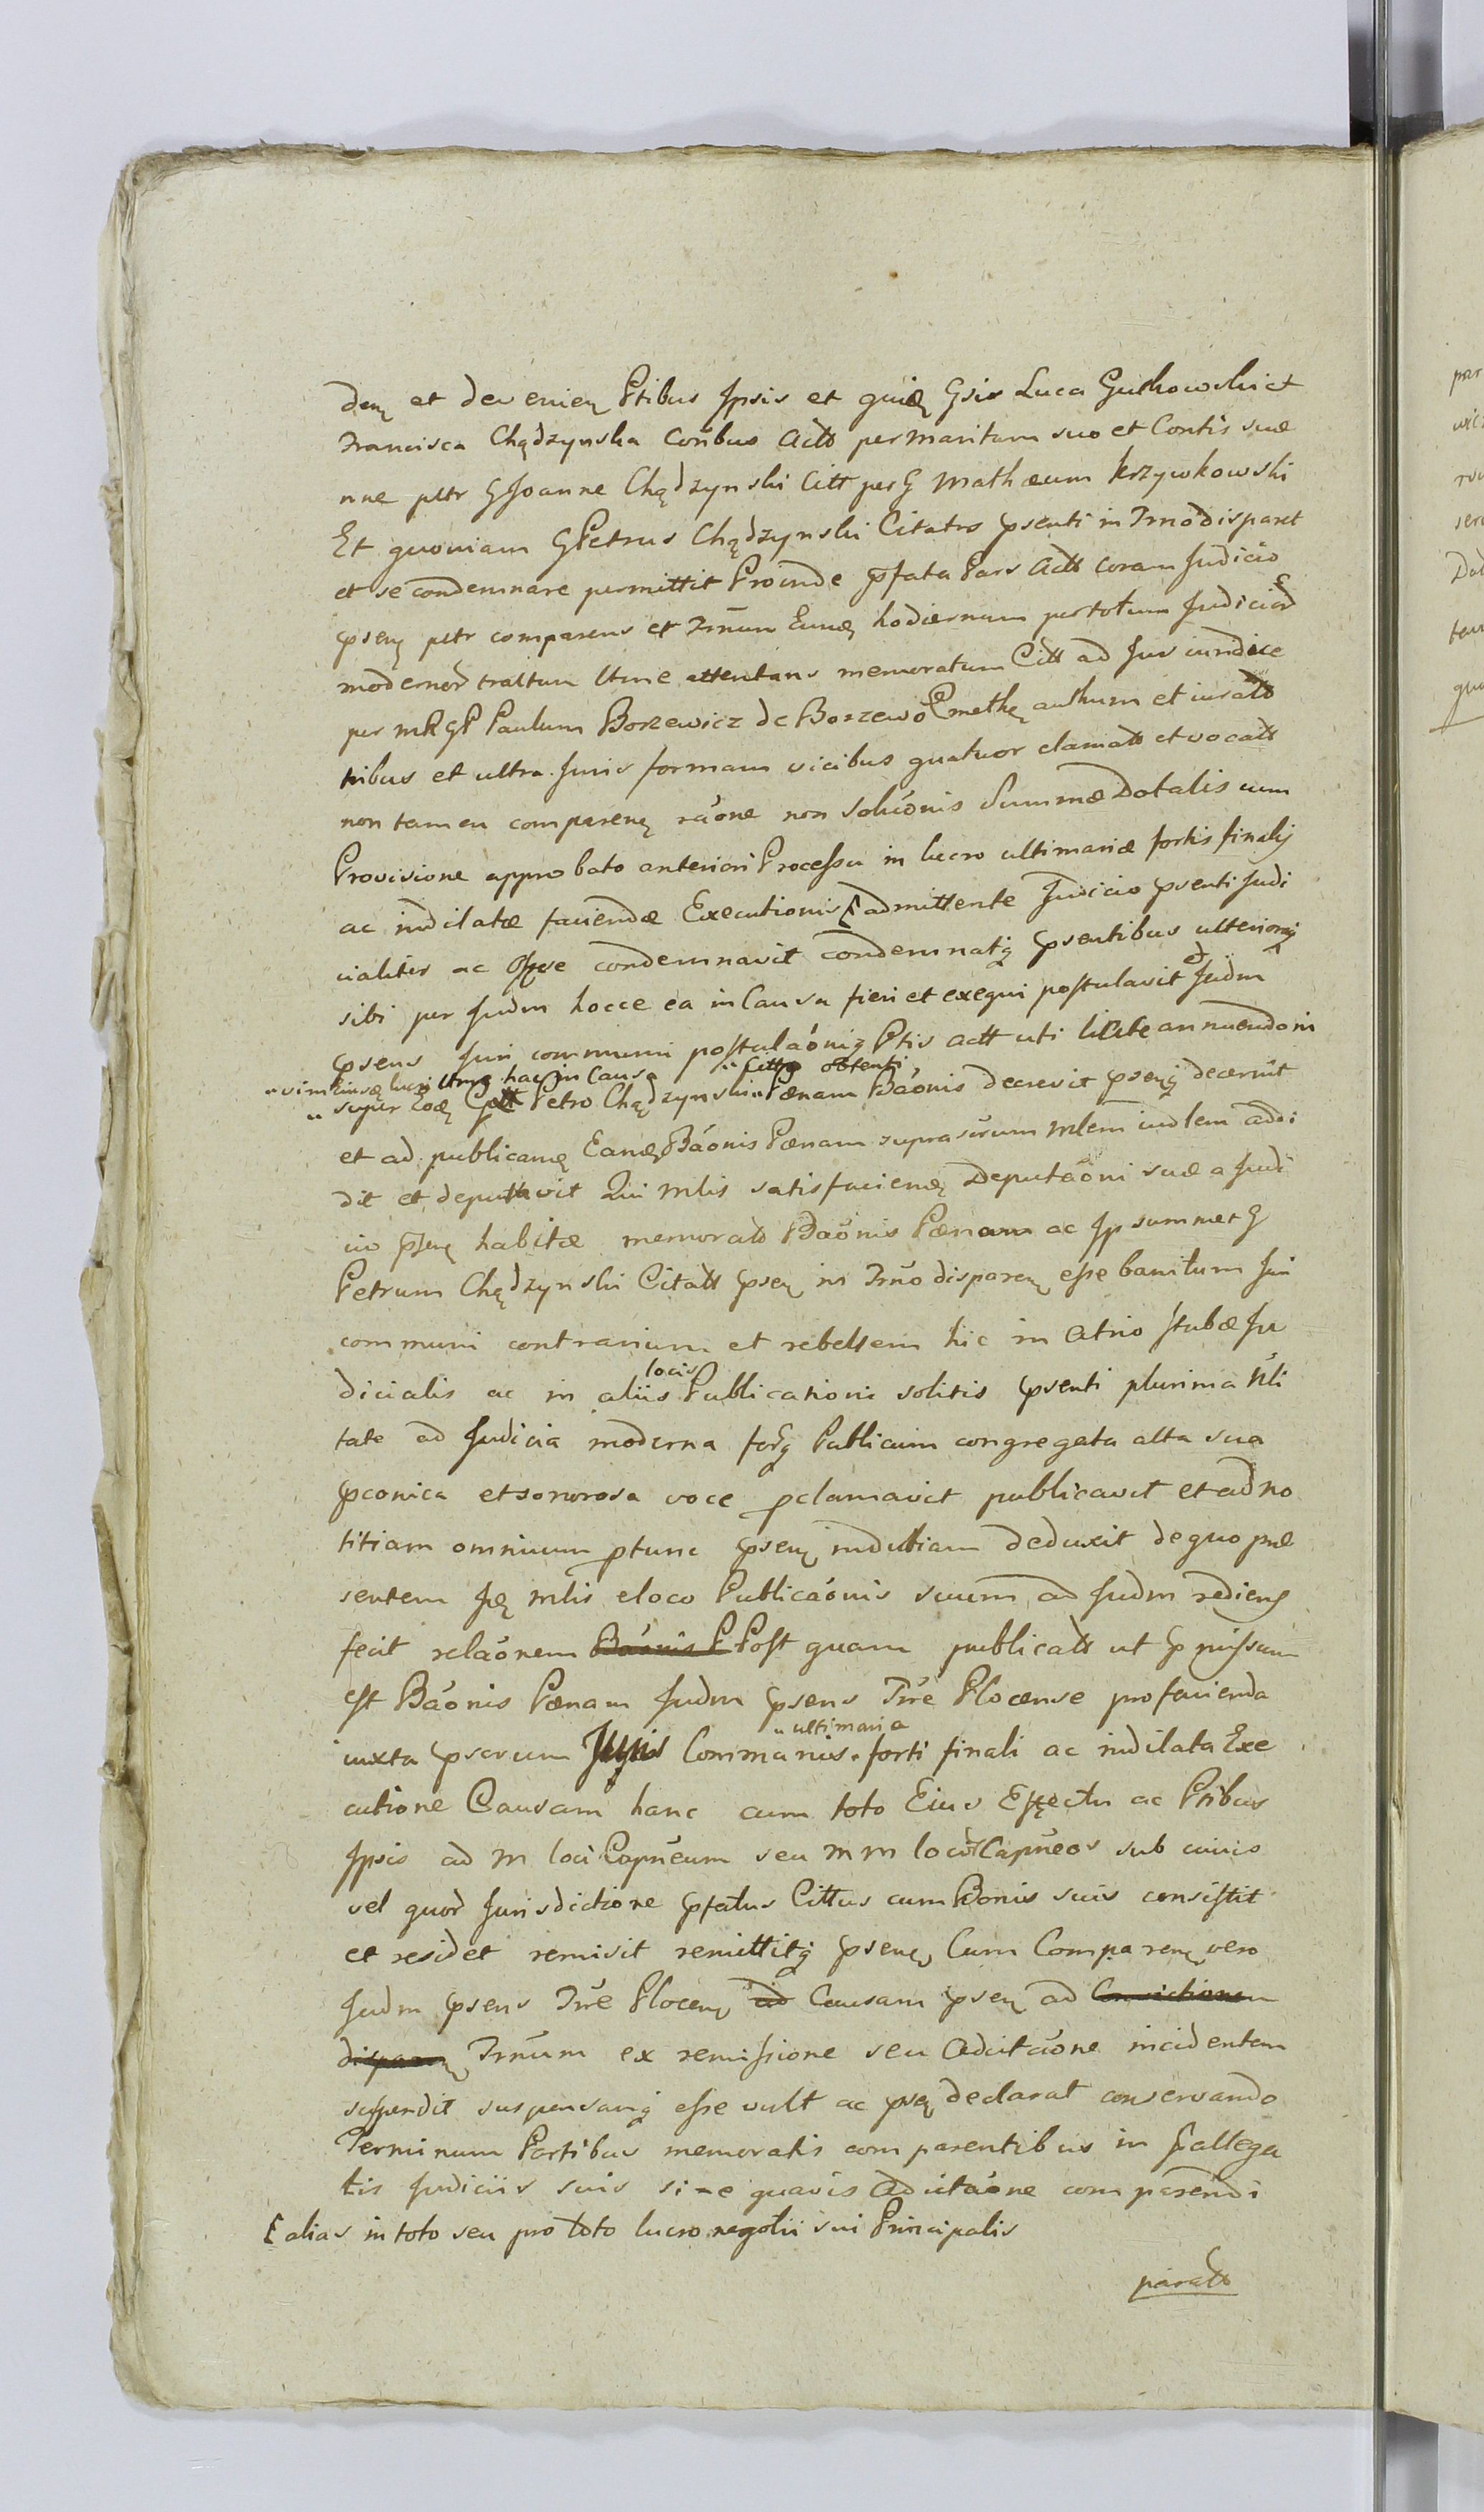 den et devenien Ptibus Ipsis et quidē Gsis Luca Gutkowski et
Francisca Chądzynska Conbus Actt per maritum suo et Contis suæ
nne pttr G Joanne Chądzynski Citt per G Mathæum Krzywkowski
Et quoniam G Petrus Chądzynski Citatus psenti in Trno disparet
et se condemnare permittit Proinde pfata Pars Actt coram Judicio
psen pttr comparens et Trnum Eund hodiernum per totum Judicior
modernor tractum Ume attentans memoratum Citt ad Jus iuridice
per MRGP Paulum Borzewicz de Borzewo authum et iuratt
tribus et ultra Juris formam vicibus quatuor clamatt et vocatt
non tamen comparen raone non soluonis Summæ Dotalis cum
Provisione approbato anteriori Processu in lucro ultimariæ fortis finalis
ac indilatæ faciendæ Executionis [ admittente Judicio psenti Judi
cialiter ac condemnavit condemnatq psentibus ulteriorq
sibi per Judm hocce ea in Causa fieri et exequi postulavit et Judm
psens Juri communi postulaoniq Ptis Actt uti licite annuendo in
"vim lucri hac in Causa " obtenti
" super Petro Chądzynski " Pænam Baonis decrevit psenq decernit
et ad publicand Eand Baonis Pænam suprascrum Mlem iudlem addi
dit et deputavit Qui Mlis satisfaciend Deputaoni suæ a Judi
cio psen habitæ memoratt Baonis Pænam ac Ipsummet G
Petrum Chądzynski Citatt psen in Trno disparen esse banitum Juri
communi contrarium et rebellem hic in Atrio Stubæ Ju
dicialis ac in aliis locis Publicationi solitis psenti plurima Nli
tate ad Judicia moderna forq Publicum congregata alta sua
pconica et sonorosa voce pclamavit publicavit et ad no
titiam omnium ptunc psen indubiam deduxit de quo præ
sentem Mlis e loco Publicaonis suum ad Judm rediens
fecit relaonem Baonis P Post quam publicatt ut pmissum
est Baonis Pænam Judm psens Tre Plocense pro facienda
iuxta pscrum Juris Communis " ultimaria forti finali ac indilata Exe
cutione Causam hanc cum toto Eius Effectu ac Ptibus
Ipsis ad M loci Capneum seu MM locor Capneos sub cuius
vel quor Jurisdictione pfatus Cittus cum Bonis suis consistit
et residet remisit remittitq psen Cum Comparen vero
Judm psens Tre Plocen ad Causam psen ad Convictionem
disparen Trnum ex remissione seu Adcitaone incidentem
suspendit suspensamq esse vult ac psen declarat conservando
Terminum Partibus memoratis comparentibus in allega
tis Judiciis suis sine quavis Adcitaone comparendi
[ alias in toto seu pro toto lucro negotii sui Principalis
paratt